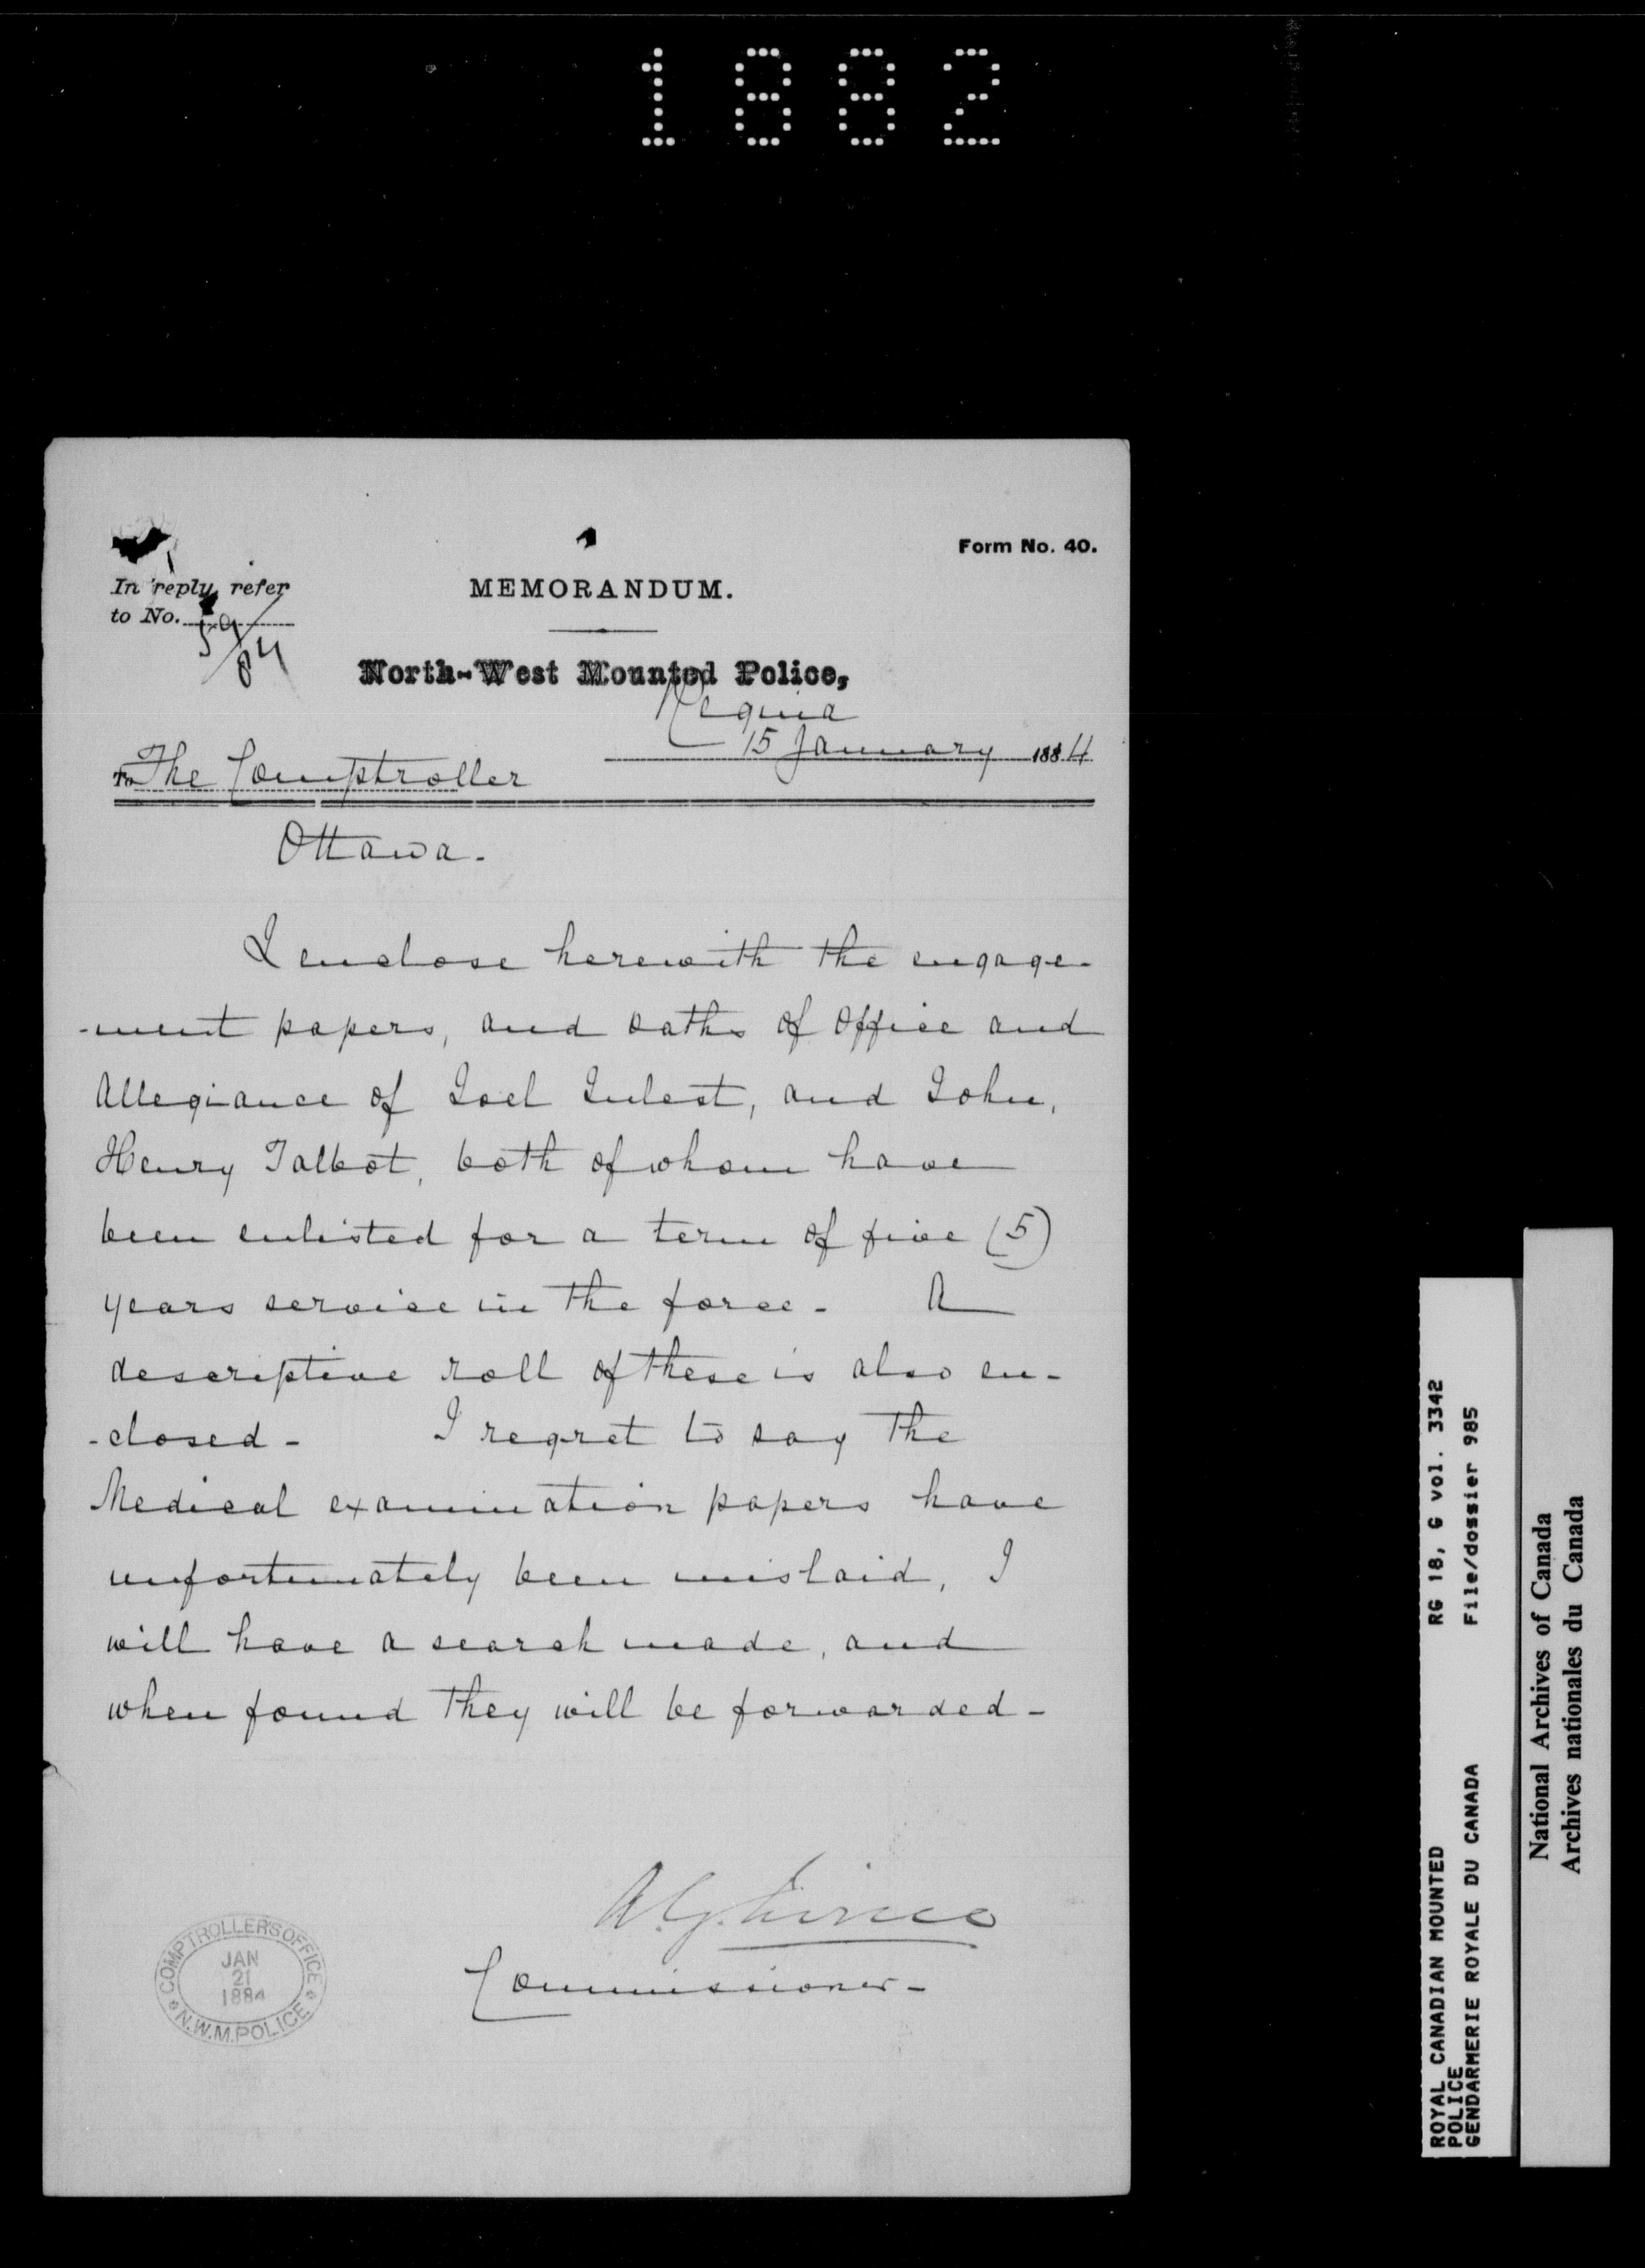 1882
Form No. 40.
In reply refer
to No. 59/84
MEMORANDUM.
North-West Mounted Police,
Regina
15 January 1884
To The Comptroller
Ottawa.
I enclose herewith the engage-
-ment papers, and oaths of office and
Allegiance of Joel and John,
Henry Talbot, both of whom have
been enlisted for a term of five (5)
years service in the force - A
descriptive roll of these is also en-
-closed - I regret to say the
Medical examination papers have
unfortunately been mislaid, I
will have a search made, and
when found they will be forwarded -
A.G. Irvine
Commissioner -
COMPTROLLER'S OFFICE
JAN
21
1884
N.W.M. POLICE
ROYAL CANADIAN MOUNTED RG 18, G vol. 3342
POLICE
GENDARMERIE ROYALE DU CANADA File/dossier 985
National Archives of Canada
Archives nationales du Canada